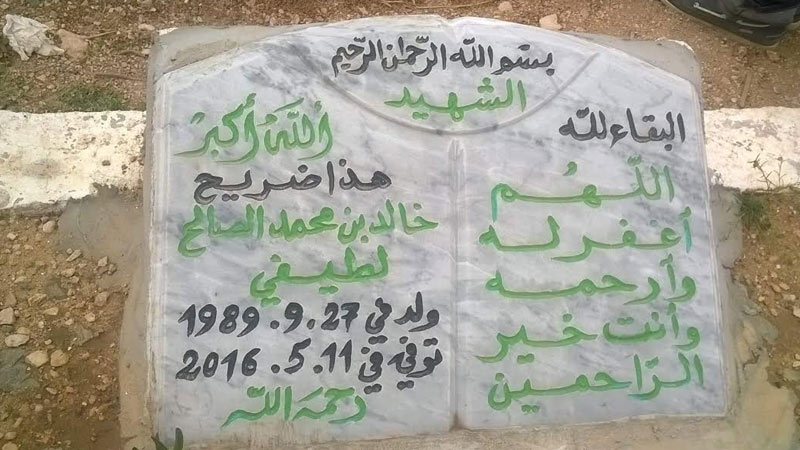 بسم الله الرّحمٰن الرّحيم
الشهيد
البقاء لله
اللّهُم
أغفر له
وأرحمه
وأنت خير
الرّاحمين
أللَّه أكبر
هذا ضريح
خالد بن محمد الصالح
لطيفي
ولد في 27.9.1989
توفي في 11.5.2016
رحمه اللّه